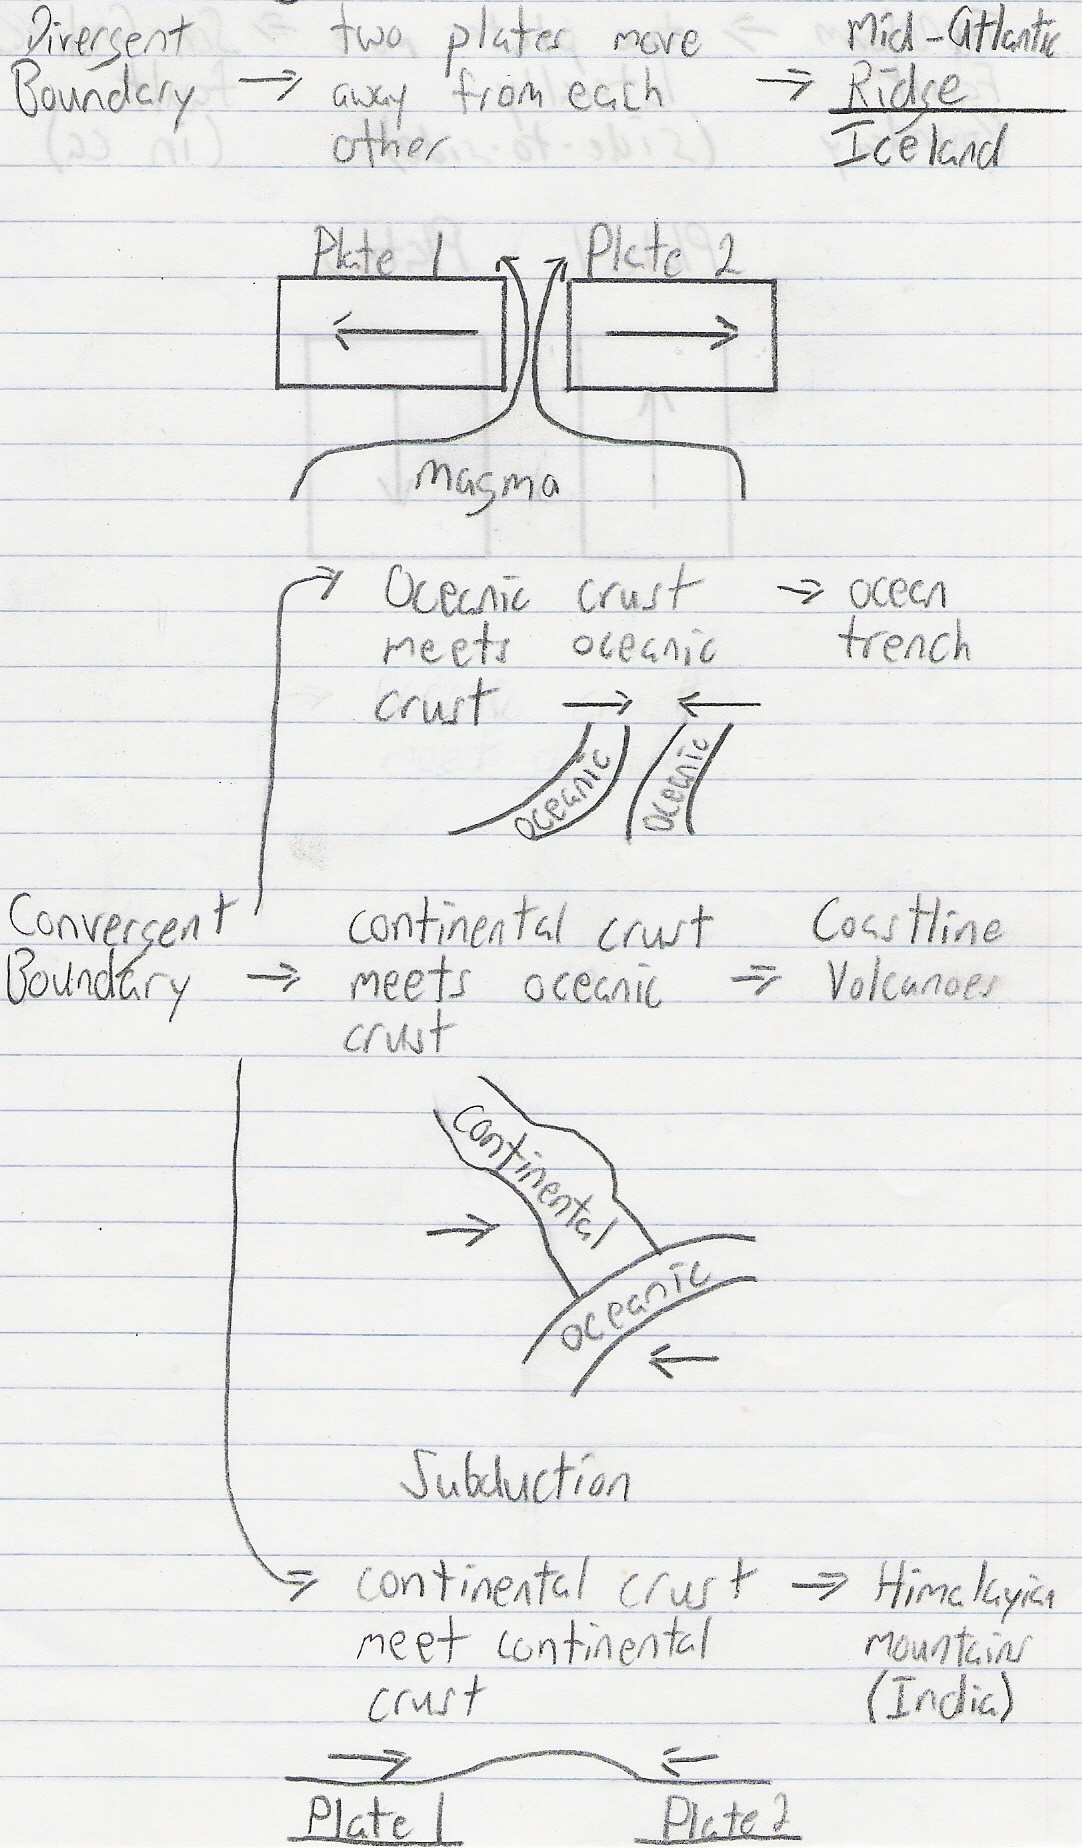 Divergent
Boundary → two plates move
away from each
other → Mid-Atlantic
Ridge
Iceland
Plate 1
Plate 2
Magma
Oceanic crust
meets oceanic
crust
→ ocean
trench
oceanic
oceanic
Convergent
Boundary → continental crust
meets oceanic
crust
→ Coastline
Volcanoes
Continental
oceanic
Subduction
continental crust
meet continental
crust
→ Himalayian
mountains
(India)
Plate 1
Plate 2